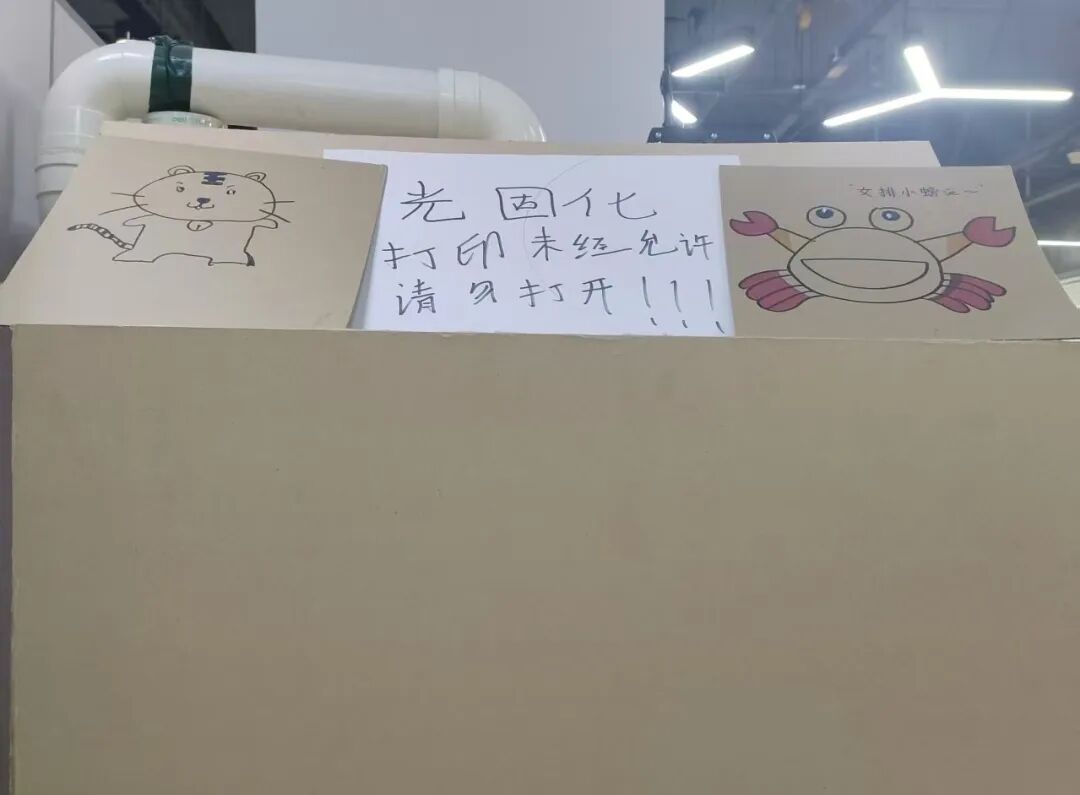 光固化
打印未经允许
请勿打开！！！
王
小螃